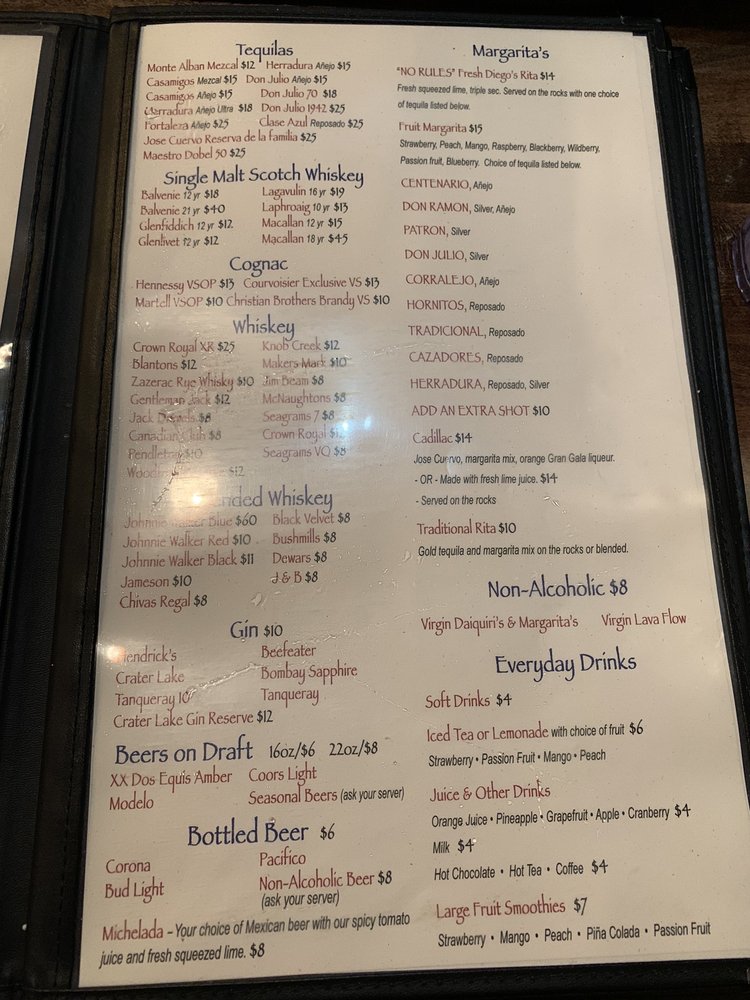 Tequilas
Monte Alban Mezcal $12 Herradura Añejo $15
Casamigos Mezcal $15 Don Julio Añejo $15
Casamigos Añejo $15 Don Julio 70 $18
Herradura Añejo Ultra $18 Don Julio 1942 $25
Fortaleza Añejo $25 Clase Azul Reposado $25
Jose Cuervo Reserva de la familia $25
Maestro Dobel 50 $25
Single Malt Scotch Whiskey
Balvenie 12 yr $18 Lagavulin 16 yr $19
Balvenie 21 yr $40 Laphroaig 10 yr $13
Glenfiddich 12 yr $12 Macallan 12 yr $15
Glenlivet 12 yr $12 Macallan 18 yr $45
Cognac
Hennessy VSOP $13 Courvoisier Exclusive VS $13
Martell VSOP $10 Christian Brothers Brandy VS $10
Whiskey
Crown Royal XR $25 Knob Creek $12
Blantons $12 Makers Mark $10
Zazerac Rye Whisky $10 Jim Beam $8
Gentleman Jack $12 McNaughtons $8
Jack Daniels $8 Seagrams 7 $8
Canadian Club $8 Crown Royal
Pendleton $10 Seagrams VO $8
$12
Whiskey
Johnnie Walker Blue $60 Black Velvet $8
Johnnie Walker Red $10 Bushmills $8
Johnnie Walker Black $11 Dewars $8
Jameson $10 J & B $8
Chivas Regal $8
Gin $10
Hendrick's Beefeater
Crater Lake Bombay Sapphire
Tanqueray 10 Tanqueray
Crater Lake Gin Reserve $12
Beers on Draft 16oz/$6 22oz/$8
XX Dos Equis Amber Coors Light
Modelo Seasonal Beers (ask your server)
Bottled Beer $6
Corona Pacifico
Bud Light Non-Alcoholic Beer $8
(ask your server)
Michelada - Your choice of Mexican beer with our spicy tomato
juice and fresh squeezed lime. $8
Margarita's
"NO RULES" Fresh Diego's Rita $14
Fresh squeezed lime, triple sec. Served on the rocks with one choice
of tequila listed below.
Fruit Margarita $15
Strawberry, Peach, Mango, Raspberry, Blackberry, Wildberry,
Passion fruit, Blueberry. Choice of tequila listed below.
CENTENARIO, Añejo
DON RAMON, Silver, Añejo
PATRON, Silver
DON JULIO, Silver
CORRALEJO, Añejo
HORNITOS, Reposado
TRADICIONAL, Reposado
CAZADORES, Reposado
HERRADURA, Reposado, Silver
ADD AN EXTRA SHOT $10
Cadillac $14
Jose Cuervo, margarita mix, orange Gran Gala liqueur.
- OR - Made with fresh lime juice. $14
- Served on the rocks
Traditional Rita $10
Gold tequila and margarita mix on the rocks or blended.
Non-Alcoholic $8
Virgin Daiquiri's & Margarita's Virgin Lava Flow
Everyday Drinks
Soft Drinks $4
Iced Tea or Lemonade with choice of fruit $6
Strawberry • Passion Fruit • Mango • Peach
Juice & Other Drinks
Orange Juice • Pineapple • Grapefruit • Apple • Cranberry $4
Milk $4
Hot Chocolate • Hot Tea • Coffee $4
Large Fruit Smoothies $7
Strawberry • Mango • Peach • Piña Colada • Passion Fruit